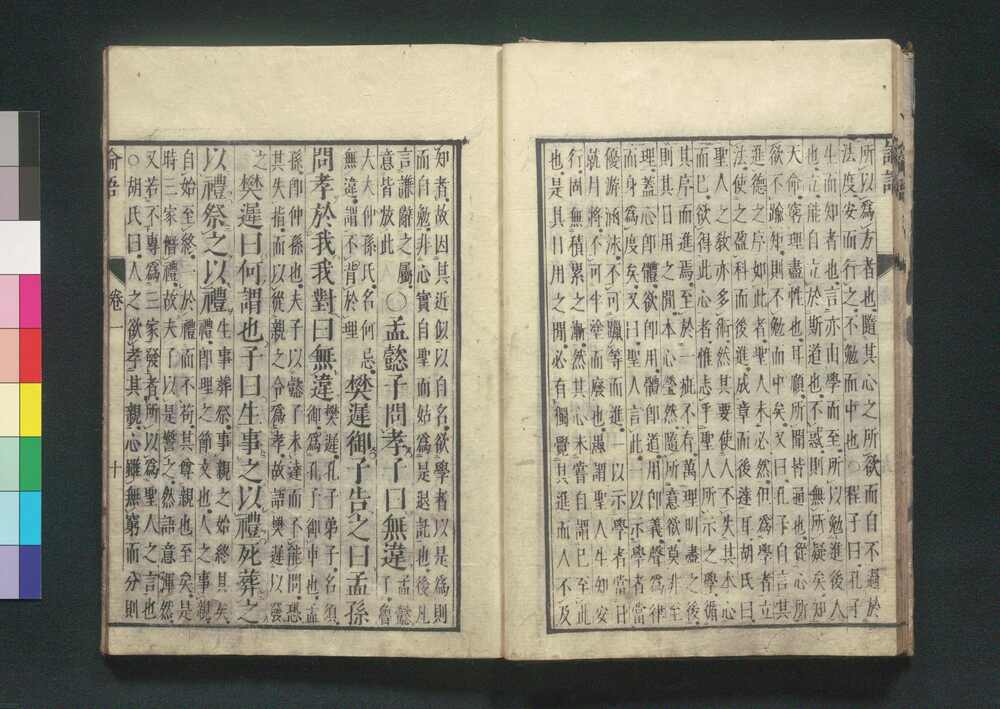 所以爲方者也隨其心之所欲而自不過於
法度安而行之不勉而中也○程子曰孔子
生而知者也言亦由學而至所以勉進後人
也立能自立於斯道也不惑則無所疑矣知
天命窮理盡性也耳順所聞皆通也從心所
欲不踰矩則不勉而中矣又曰孔子自言其
進德之序如此者聖人未必然但爲學者立
法使之盈科而後進成章而後達耳胡氏曰
聖人之教亦多術然其要使人不失其本心
而已欲得此心者惟志乎聖人所示之學循
其序而進焉至於一疵不存萬理明盡之後
則其日用之閒本心瑩然隨所意欲莫非至
理蓋心卽體欲卽用體卽道用卽義聲爲律
而身爲度矣又曰聖人言此一以示學者當
優游涵泳不可躐等而進二以示學者當日
就月將不可半塗而廢也愚謂聖人生知安
行固無積累之漸然其心未嘗自謂已至此
也是其日用之閒必有獨覺其進而人不及
知者故因其近似以自名欲學者以是爲則
而自勉非心實自聖而姑爲是退託也後凡
言謙辭之屬意皆放此○孟懿子問孝子曰無違孟懿子魯
大夫仲孫氏名何忌無違謂不背於理樊遲御子告之曰孟孫
問孝於我我對曰無違樊遲孔子弟子名須御爲孔子御車也孟
孫卽仲孫也夫子以懿子未達而不能問恐
其失指而以從親之令爲孝故語樊遲以發
之樊遲曰何謂也子曰生事之以禮死葬之
以禮祭之以禮生事葬祭事親之始終具矣禮卽理之節文也人之事親
自始至終一於禮而不苟其尊親也至矣是
時三家僭禮故夫子以是警之然語意渾然
又若不專爲三家發者所以爲聖人之言也
○胡氏曰人之欲孝其親心雖無窮而分則
論語 卷一 十